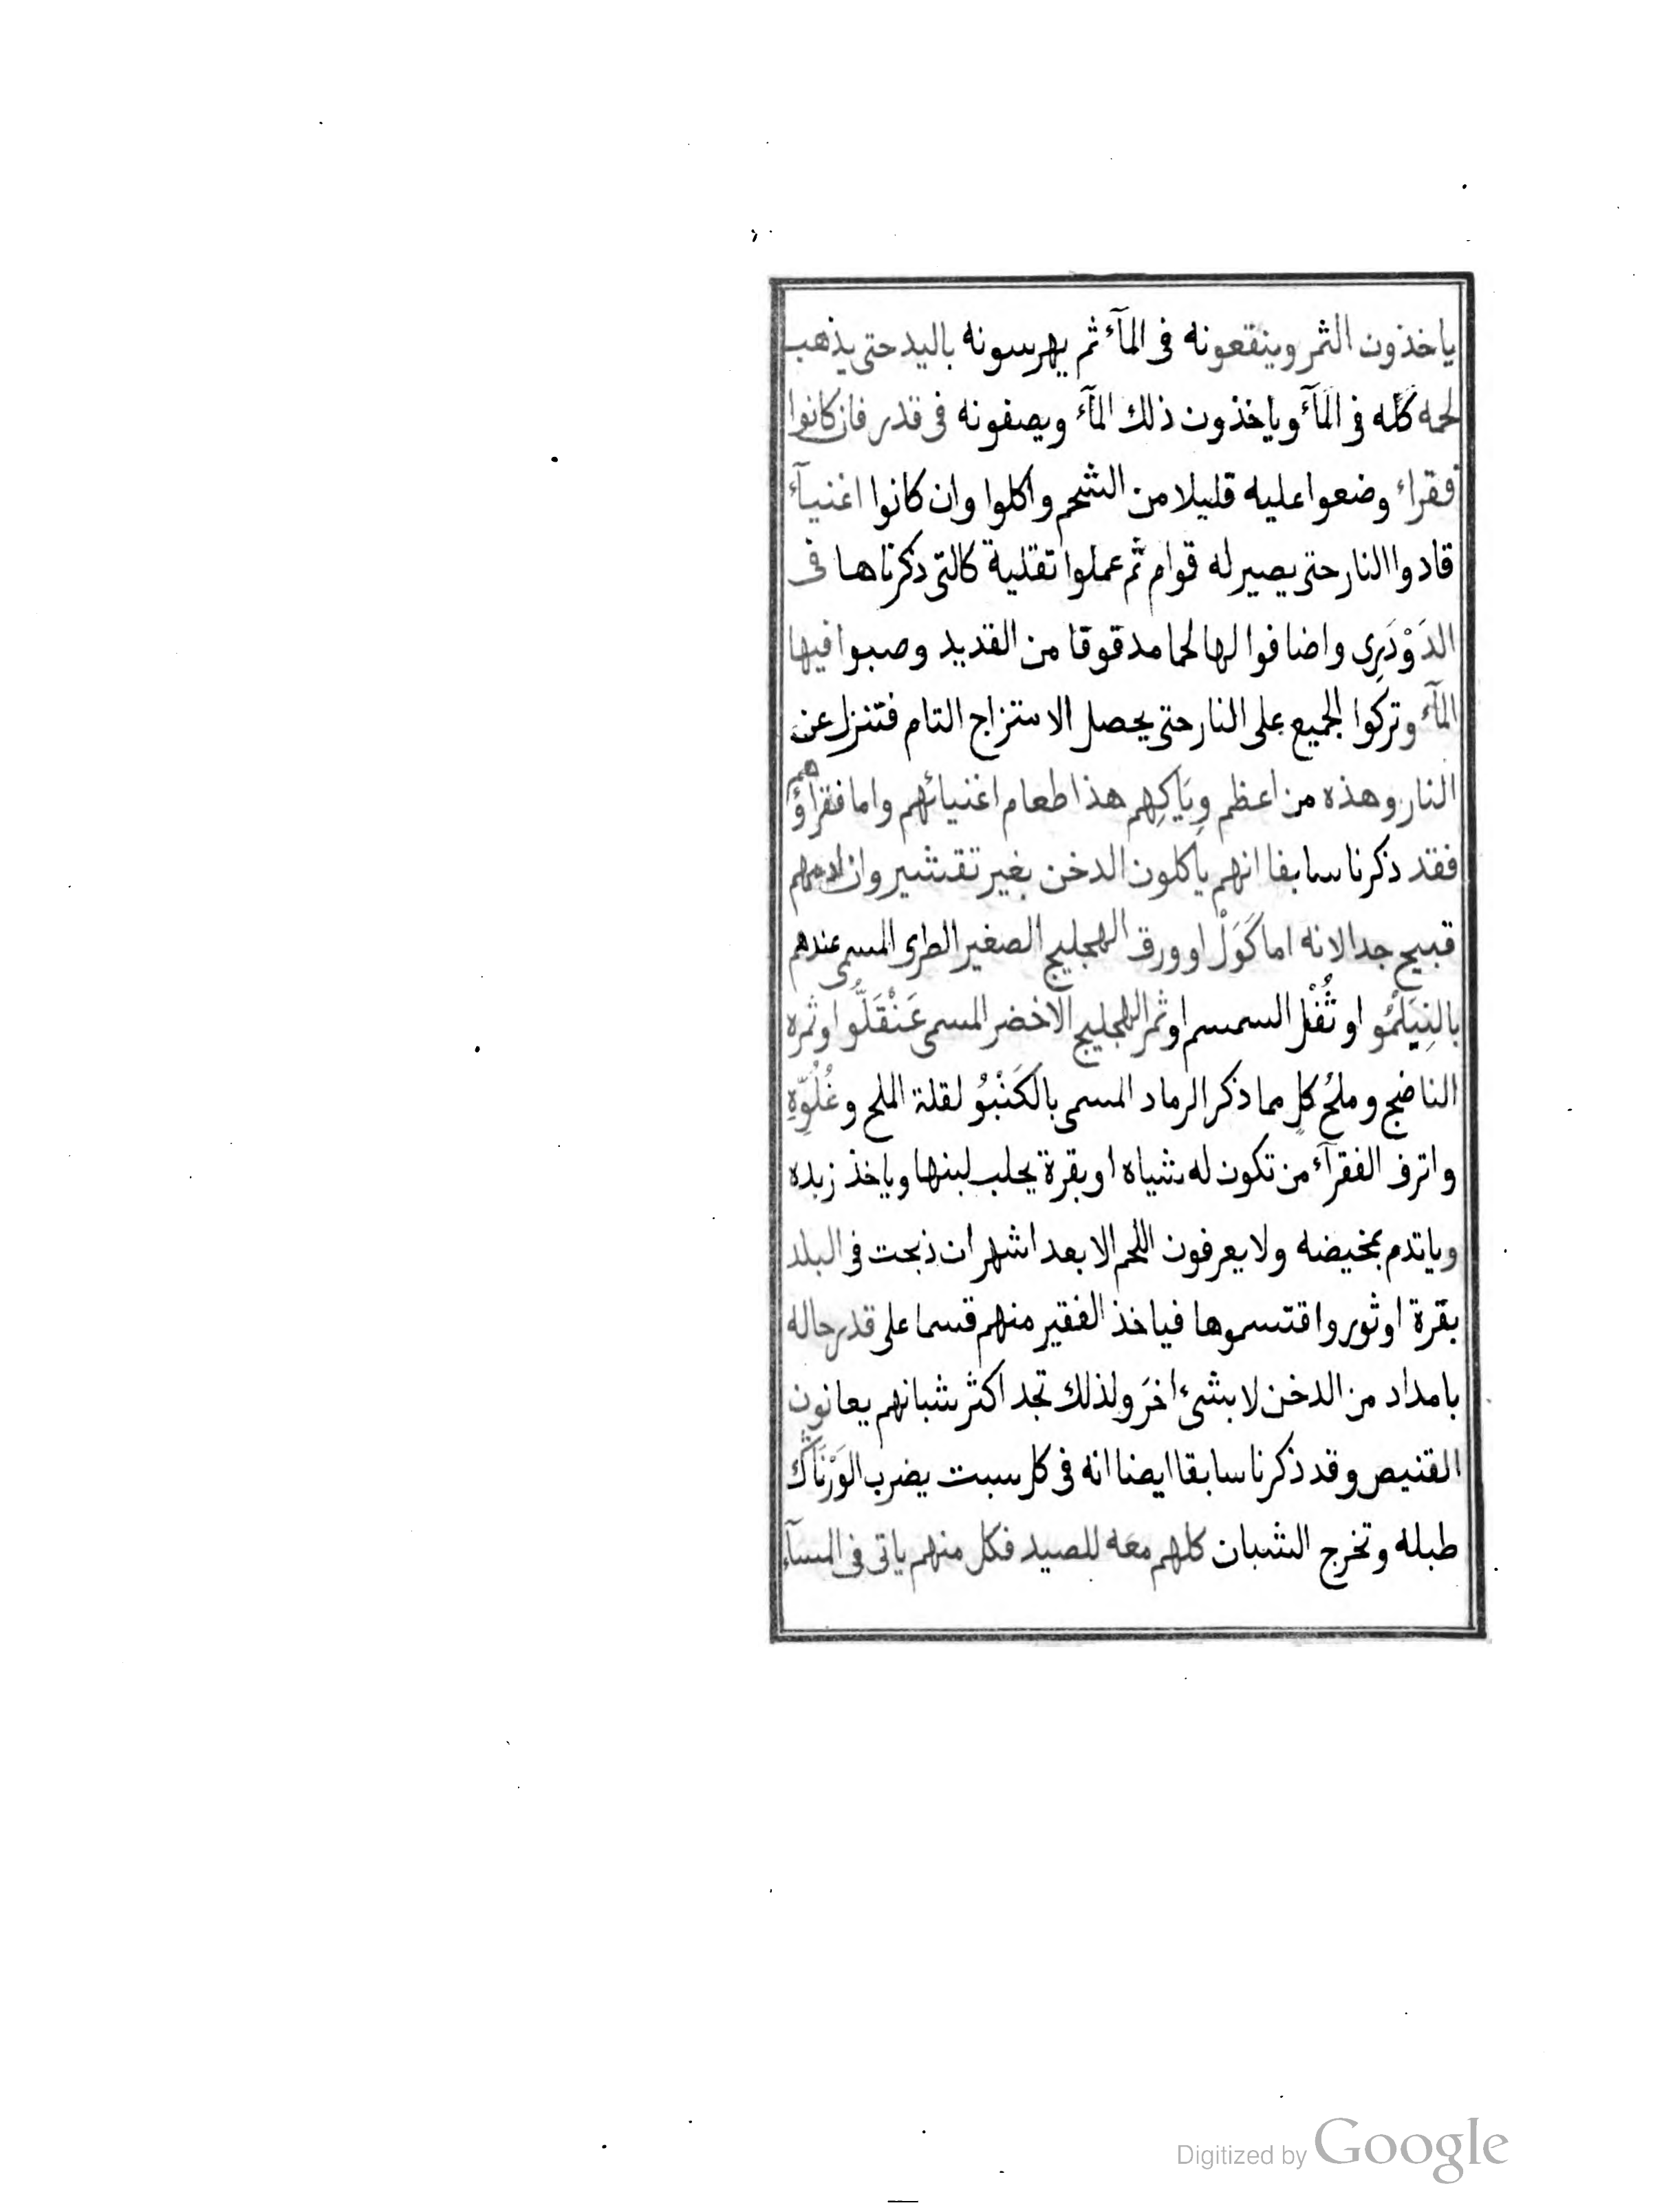 ياخذون الثمر وينقعونه فى المآء ثم يهرسونه باليد حتى يذهب
لحمه كله فى المآء وياخذون ذلك المآء ويصفونه فى قدر فان كانوا
فقراء وضعوا عليه قليلا من الشحم واكلوا وان كانوا اغنيآء
قادوا النار حتى يصير له قوام ثم عملوا تقلية كالتى ذكرناها فى
الدَوْدَرِى واضافوا لها لحما مدقوقا من القديد وصبوا فيها
المآء وتركوا الجميع على النار حتى يحصل الامتزاج التام فتنزل عن
النار وهذه من اعظم وِيَاكِهِم هذا طعام اغنيائهم واما فقراؤهم
فقد ذكرنا سابقا انهم ياكلون الدخن بغير تقشير وان ادمهم
قبيح جدا لانه اما كَوَلْ او ورق الهجليج الصغير الطرى المسمى عندهم
بالنِيَلْمُو او ثُفْل السمسم او ثمر الهجليج الاخضر المسمى عَنْقَلُّو او ثمره
الناضج وملحُ كلٍ مما ذكر الرماد المسمى بالكَنْبُو لقلة الملح وغُلُوِّهِ
واترف الفقرآء من تكون له شياه او بقرة يحلب لبنها وياخذ زبده
وياتدم بمخيضه ولا يعرفون اللحم الا بعد اشهر ان ذبحت فى البلد
بقرة او ثور واقتسموها فياخذ الفقير منهم قسما على قدر حاله
بامداد من الدخن لا بشئ اخرَ ولذلك تجد اكثر شبانهم يعانون
القنيص وقد ذكرنا سابقا ايضا انه فى كل سبت يضرب الوَرْنَانْك
طبله وتخرج الشبان كلهم معه للصيد فكل منهم ياتى فى المسآء
Digitized by Google